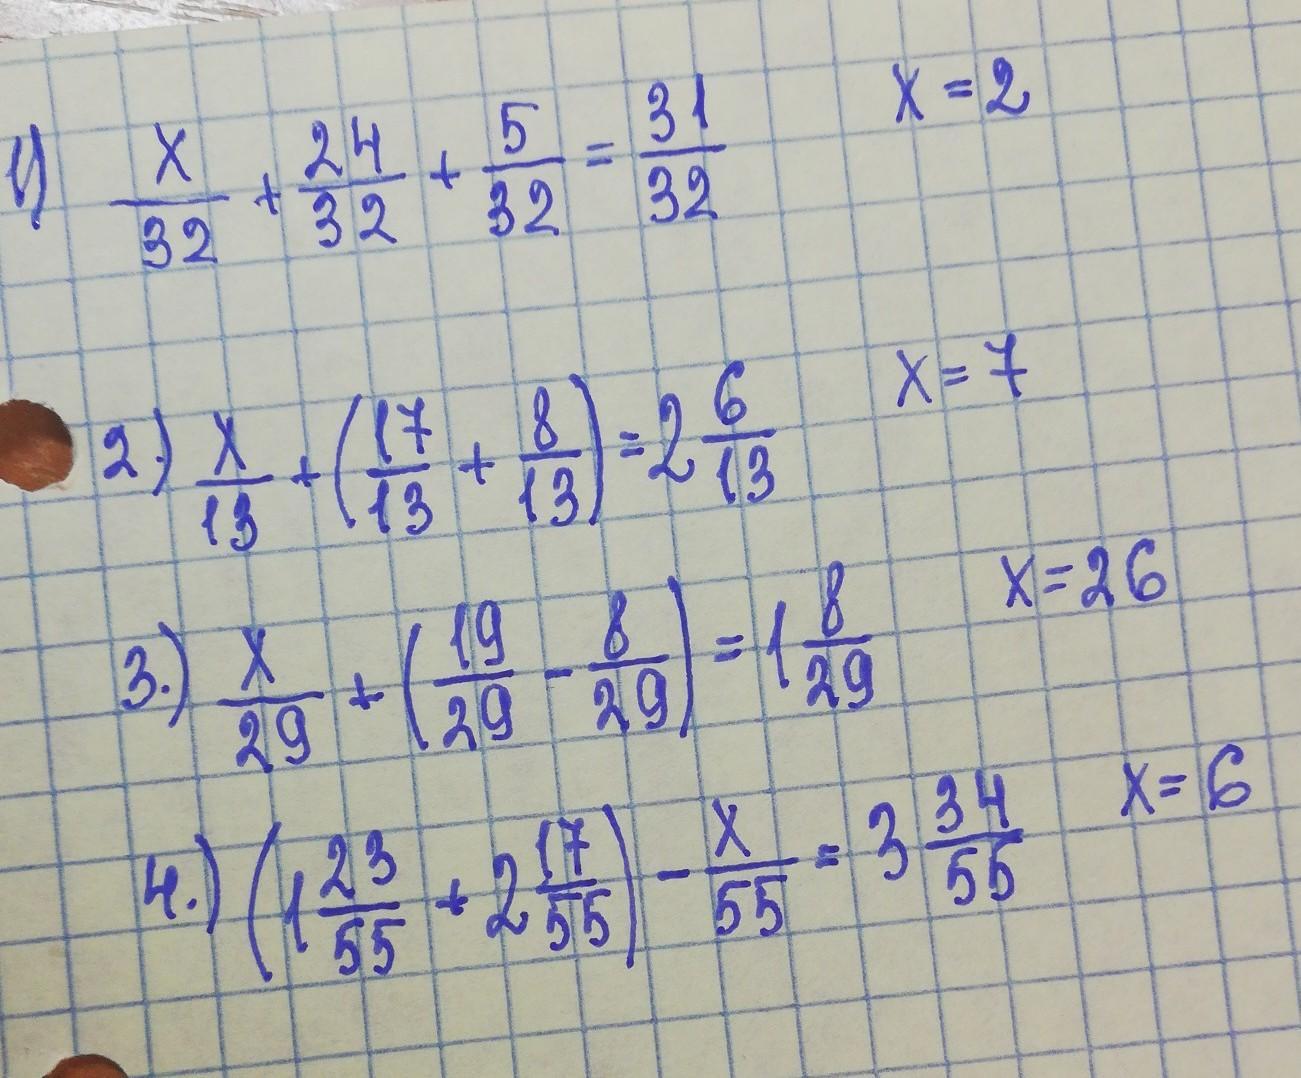 1) x/32 + 24/32 + 5/32 = 31/32 x = 2
2.) x/13 + (17/13 + 8/13) = 2 6/13 x = 7
3.) x/29 + (19/29 - 8/29) = 1 8/29 x = 26
4.) (1 23/55 + 2 17/55) - x/55 = 3 34/55 x = 6